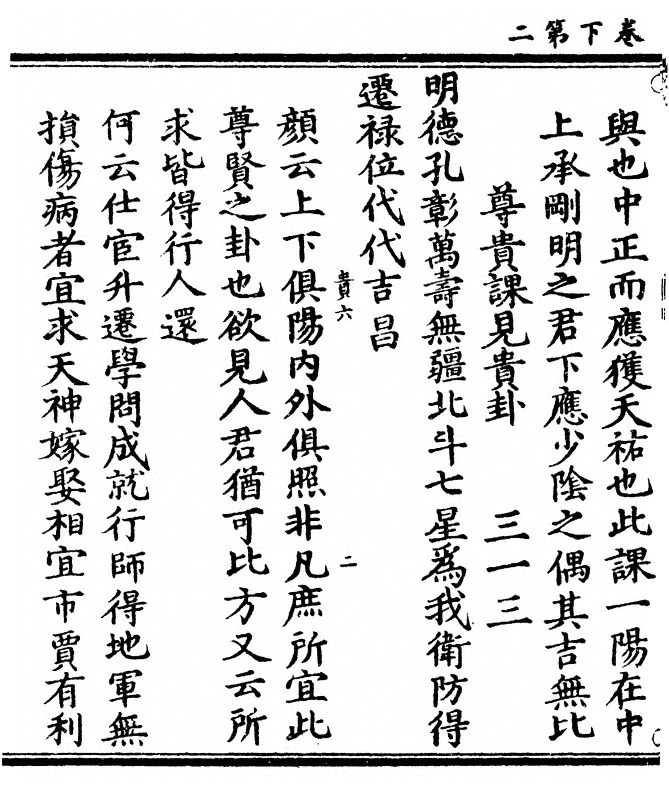 卷下第二
與也中正而應獲天祐也此課一陽在中
上承剛明之君下應少陰之偶其吉無比
尊貴課見貴卦 三一三
明德孔彰萬壽無疆北斗七星爲我衛防得
遷禄位代代吉昌
貴六 二
顔云上下俱陽内外俱照非凡庶所宜此
尊賢之卦也欲見人君猶可比方又云所
求皆得行人還
何云仕宦升遷學問成就行師得地軍無
損傷病者宜求天神嫁娶相宜市賈有利